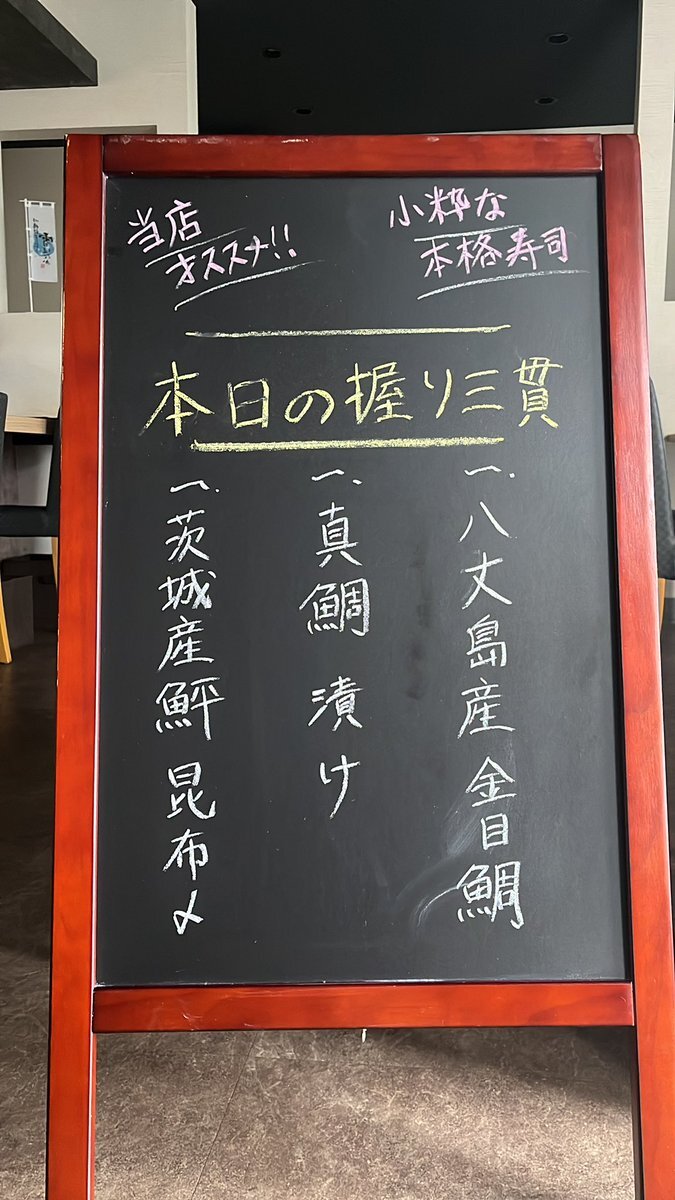 小粋な
本格寿司
当店
オススメ!!
本日の握り三貫
一、八丈島産 金目鯛
一、真鯛 漬け
一、茨城産鮃 昆布〆